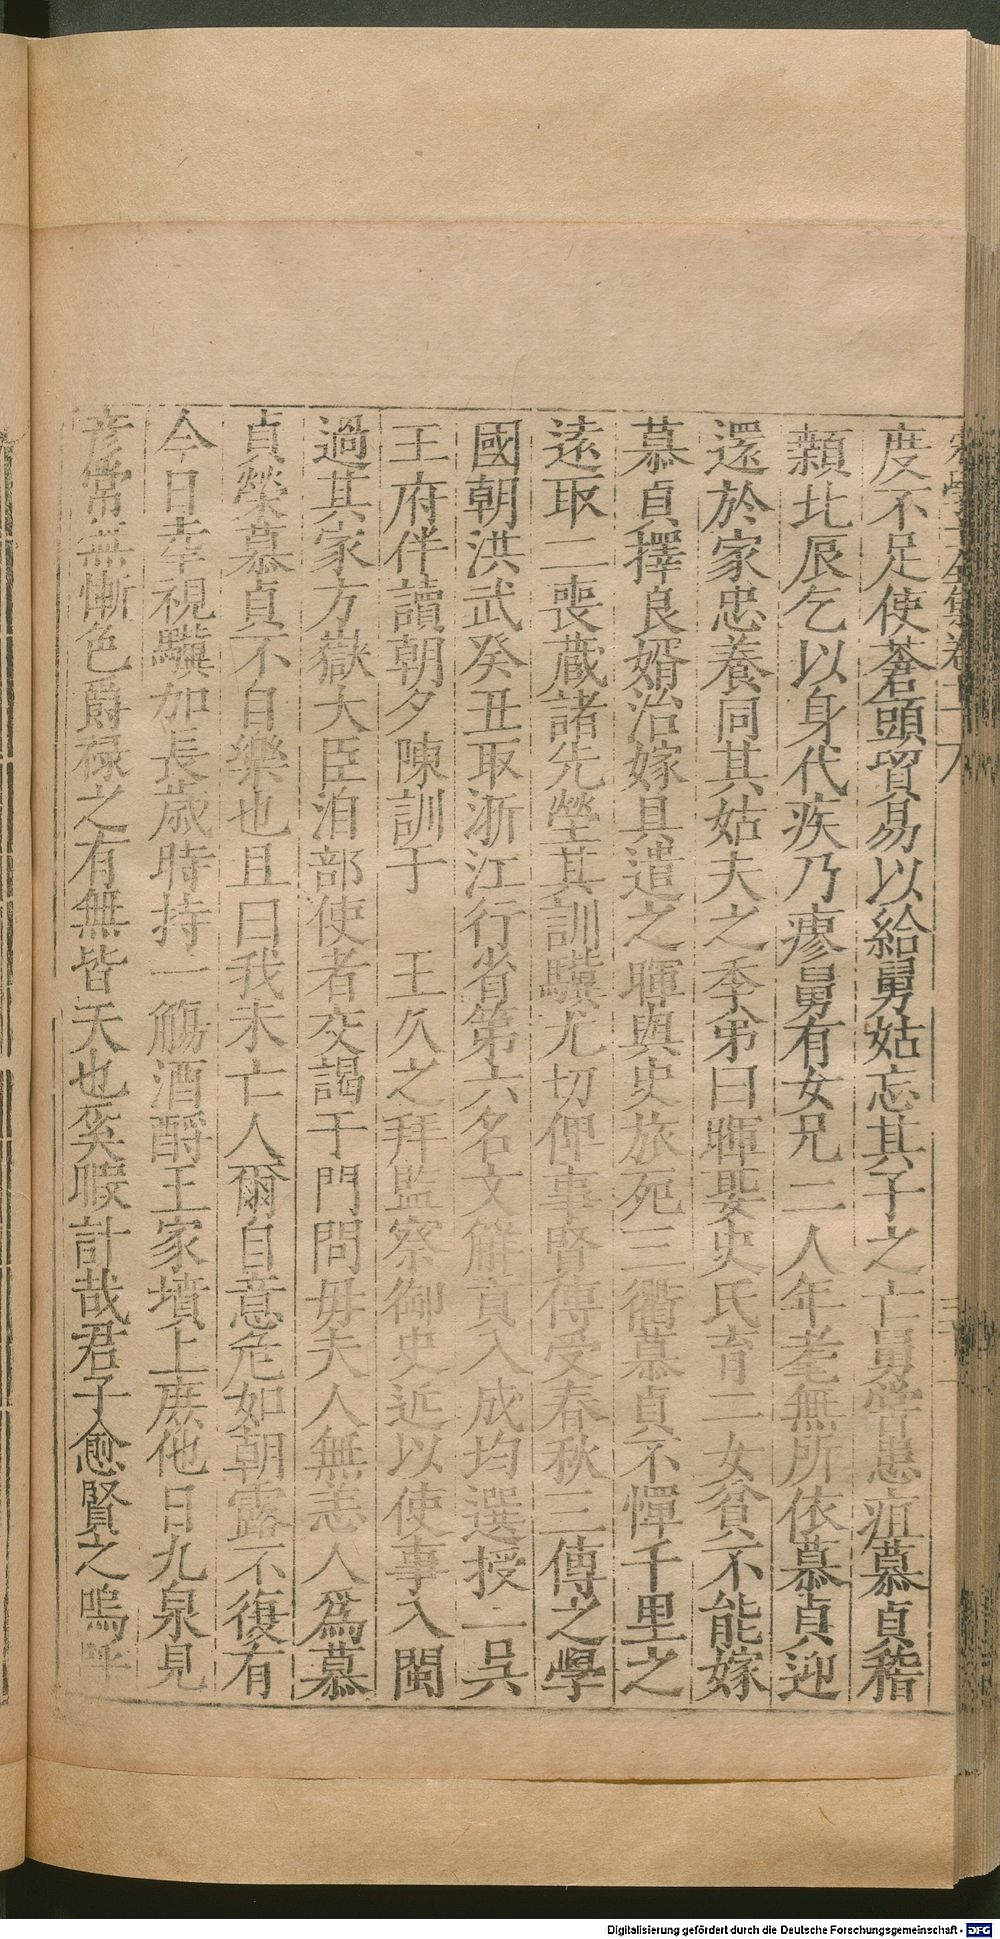 度不足使蒼頭貿易以給舅姑忘其子之亡舅嘗患疽慕貞稽
顙北辰乞以身代疾乃瘳舅有女兄二人年耄無所依慕貞迎
還於家忠養同其姑夫之季弟曰暉娶史氏育二女貧不能嫁
慕貞擇良婿治嫁具遣之暉與史旅死三衢慕貞不憚千里之
遠取二喪蔵諸先塋其訓驥尤切俾事賢傳受春秋三傳之學
國朝洪武癸丑取浙江行省第六名文解貢入成均選授二吳
王府伴讀朝夕陳訓于 王久之拜監察御史近以使事入閩
過其家方嶽大臣洎部使者交謁于門問毋夫人無恙人爲慕
貞榮慕貞不自樂也且曰我未亡人爾自意危如朝露不復有
今日幸視驥加長歳時持一觴酒酹王家墳上庶他日九泉見
彦常無慚色爵祿之有無皆天也奚暇計哉君子愈賢之嗚呼
Digitalisierung gefördert durch die Deutsche Forschungsgemeinschaft - DFG